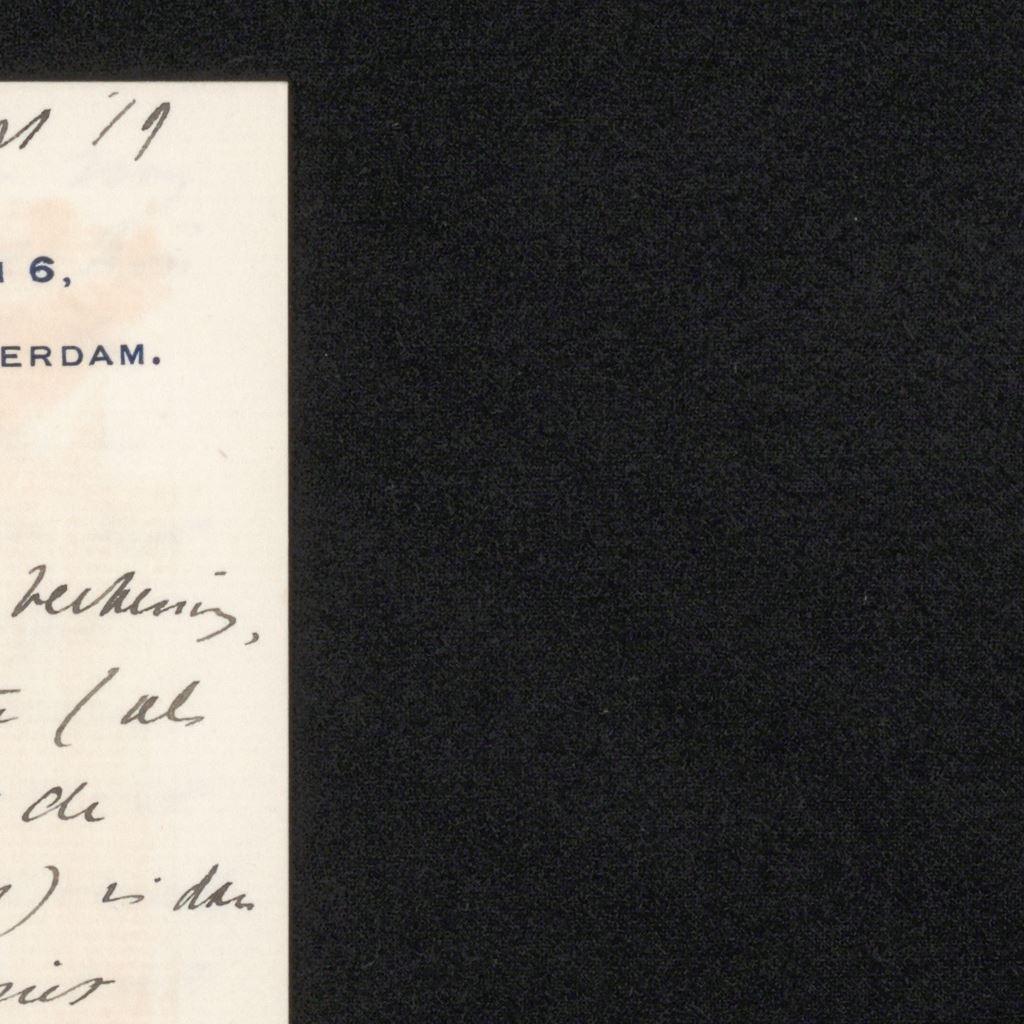 '19
6,
ERDAM.
rekening,
( als
de
) is dan
niet